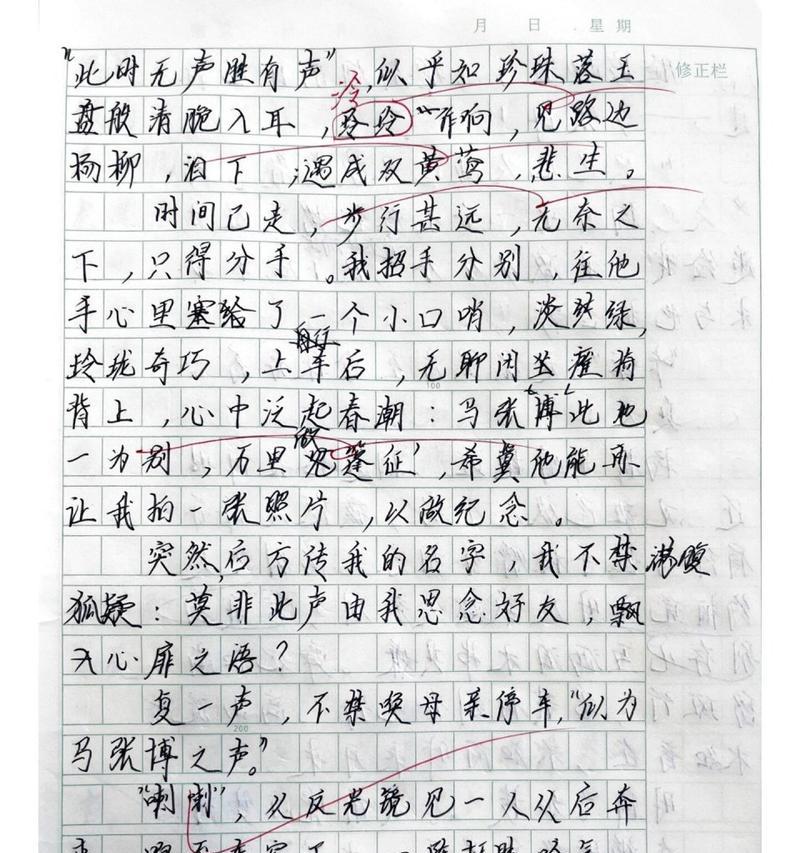 月 日 星期
修正栏
"此时无声胜有声",似乎如珍珠落玉
盘般清脆入耳,泠泠"作响,见路边
杨柳,泪下;遇成双黄莺,悲生。
时间已走,步行甚远,无奈之
下,只得分手。我招手分别,往他
手心里塞给了一个小口哨,淡绿,
玲珑奇巧,上车后,无聊闭坐
背上,心中泛起春潮:马张博"此地
一为别,万里蓬征",希冀他能再
让我拍一张照片,以做纪念。
100
突然,后方传我的名字,我不禁满腹
狐疑:莫非此声由我思念好友,飘
心扉之语?
复一声,不禁唤母亲停车,"似为
200
马张博之声。"
"喇喇",从反光镜见一人从后奔